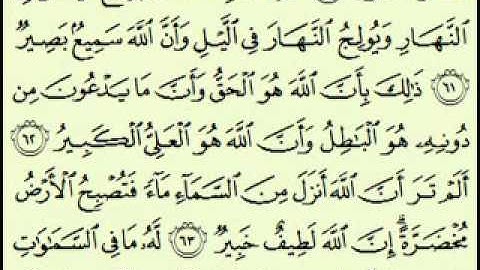 ٱلنَّهَارِ وَيُولِجُ ٱلنَّهَارَ فِى ٱلَّيْلِ وَأَنَّ ٱللَّهَ سَمِيعٌۢ بَصِيرٌ
٦١ ذَٰلِكَ بِأَنَّ ٱللَّهَ هُوَ ٱلْحَقُّ وَأَنَّ مَا يَدْعُونَ مِن
دُونِهِۦ هُوَ ٱلْبَٰطِلُ وَأَنَّ ٱللَّهَ هُوَ ٱلْعَلِىُّ ٱلْكَبِيرُ ٦٢
أَلَمْ تَرَ أَنَّ ٱللَّهَ أَنزَلَ مِنَ ٱلسَّمَآءِ مَآءً فَتُصْبِحُ ٱلْأَرْضُ
مُخْضَرَّةً ۗ إِنَّ ٱللَّهَ لَطِيفٌ خَبِيرٌ ٦٣ لَّهُۥ مَا فِى ٱلسَّمَٰوَٰتِ